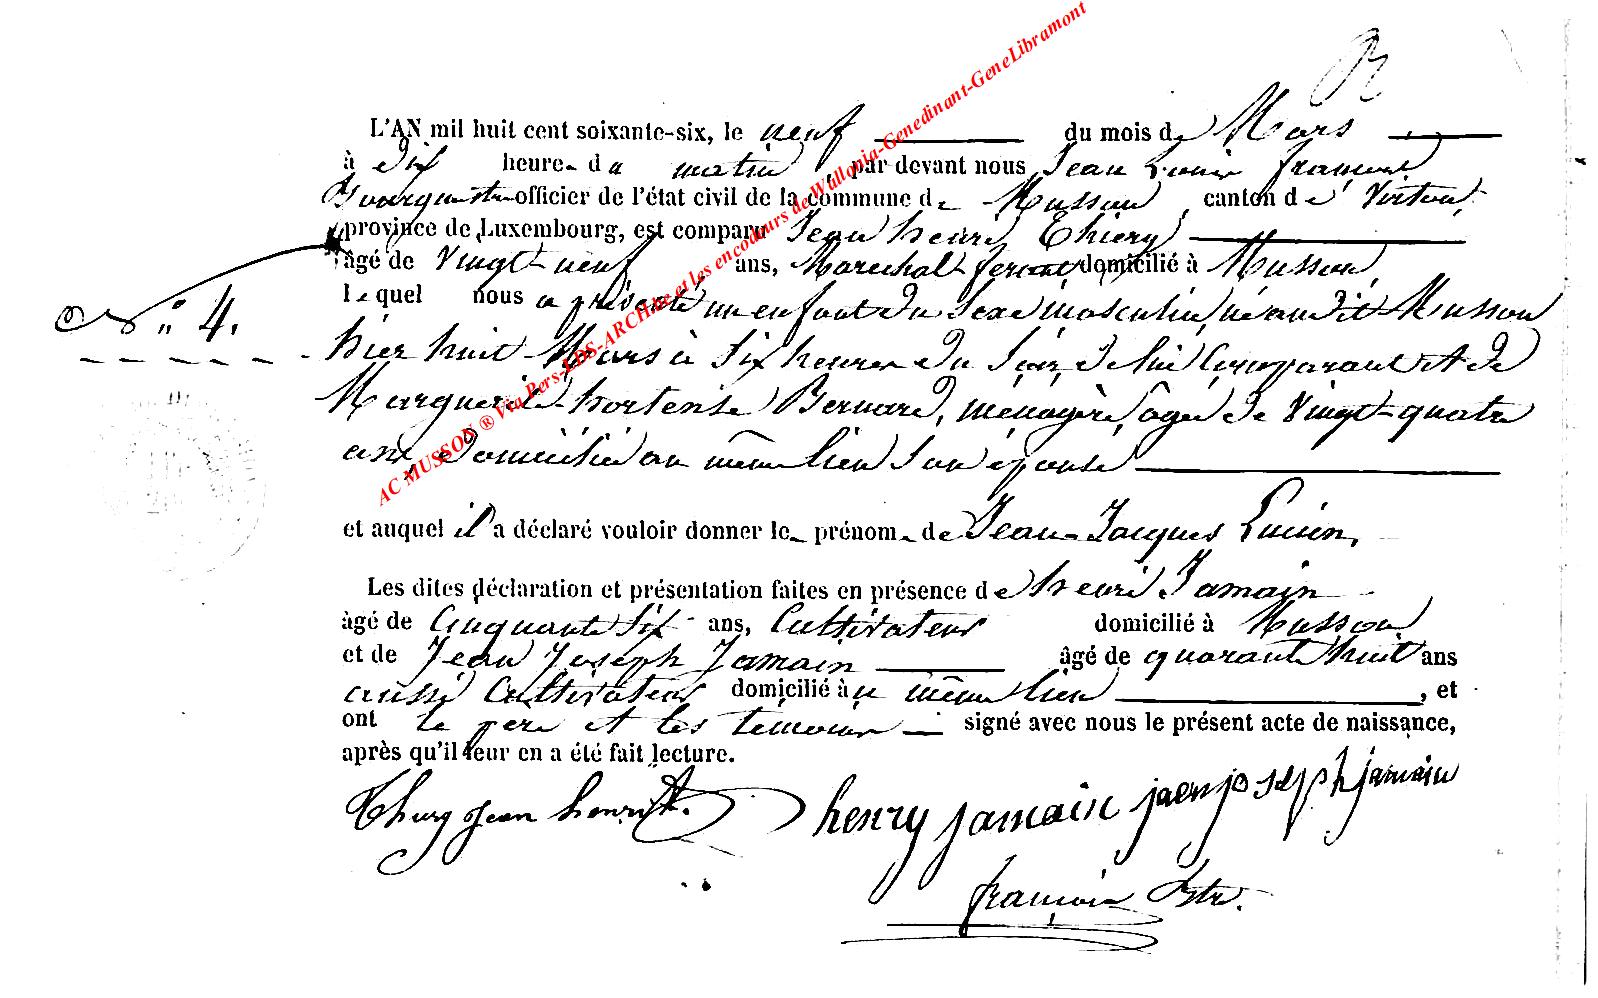 L'AN mil huit cent soixante-six, le neuf du mois de Mars
à dix heure du matin, par devant nous Jean Louis françois
Bourgmestre officier de l'état civil de la commune de Musson, canton de Virton,
province de Luxembourg, est comparu Jean henri Thiery
âgé de Vingt-neuf ans, Marechal-ferrant domicilié à Musson,
N° 4.
lequel nous a présenté un enfant du Sexe masculin, né audit Musson
hier huit Mars à Six heures du Soir, de lui Comparant et de
Marguerite-hortense Bernard, ménagère, âgée de Vingt-quatre
ans, domiciliée au même lieu Son épouse
et auquel il a déclaré vouloir donner le prénom de Jean-Jacques Lucien,
Les dites déclaration et présentation faites en présence de henri Jamain
âgé de Cinquante Six ans, Cultivateur domicilié à Musson
et de Jean Joseph Jamain âgé de quarante huit ans
aussi Cultivateur domicilié au même lieu, et
ont le père et les temoins signé avec nous le présent acte de naissance,
après qu'il leur en a été fait lecture.
Thiery Jean henri
henry jamain jaenjosephjamain
françois Btr.
AC MUSSON ® Via Pers-LDS-ARCHbe et les encodeurs de Wallonia-Genedinant-GeneLibramont